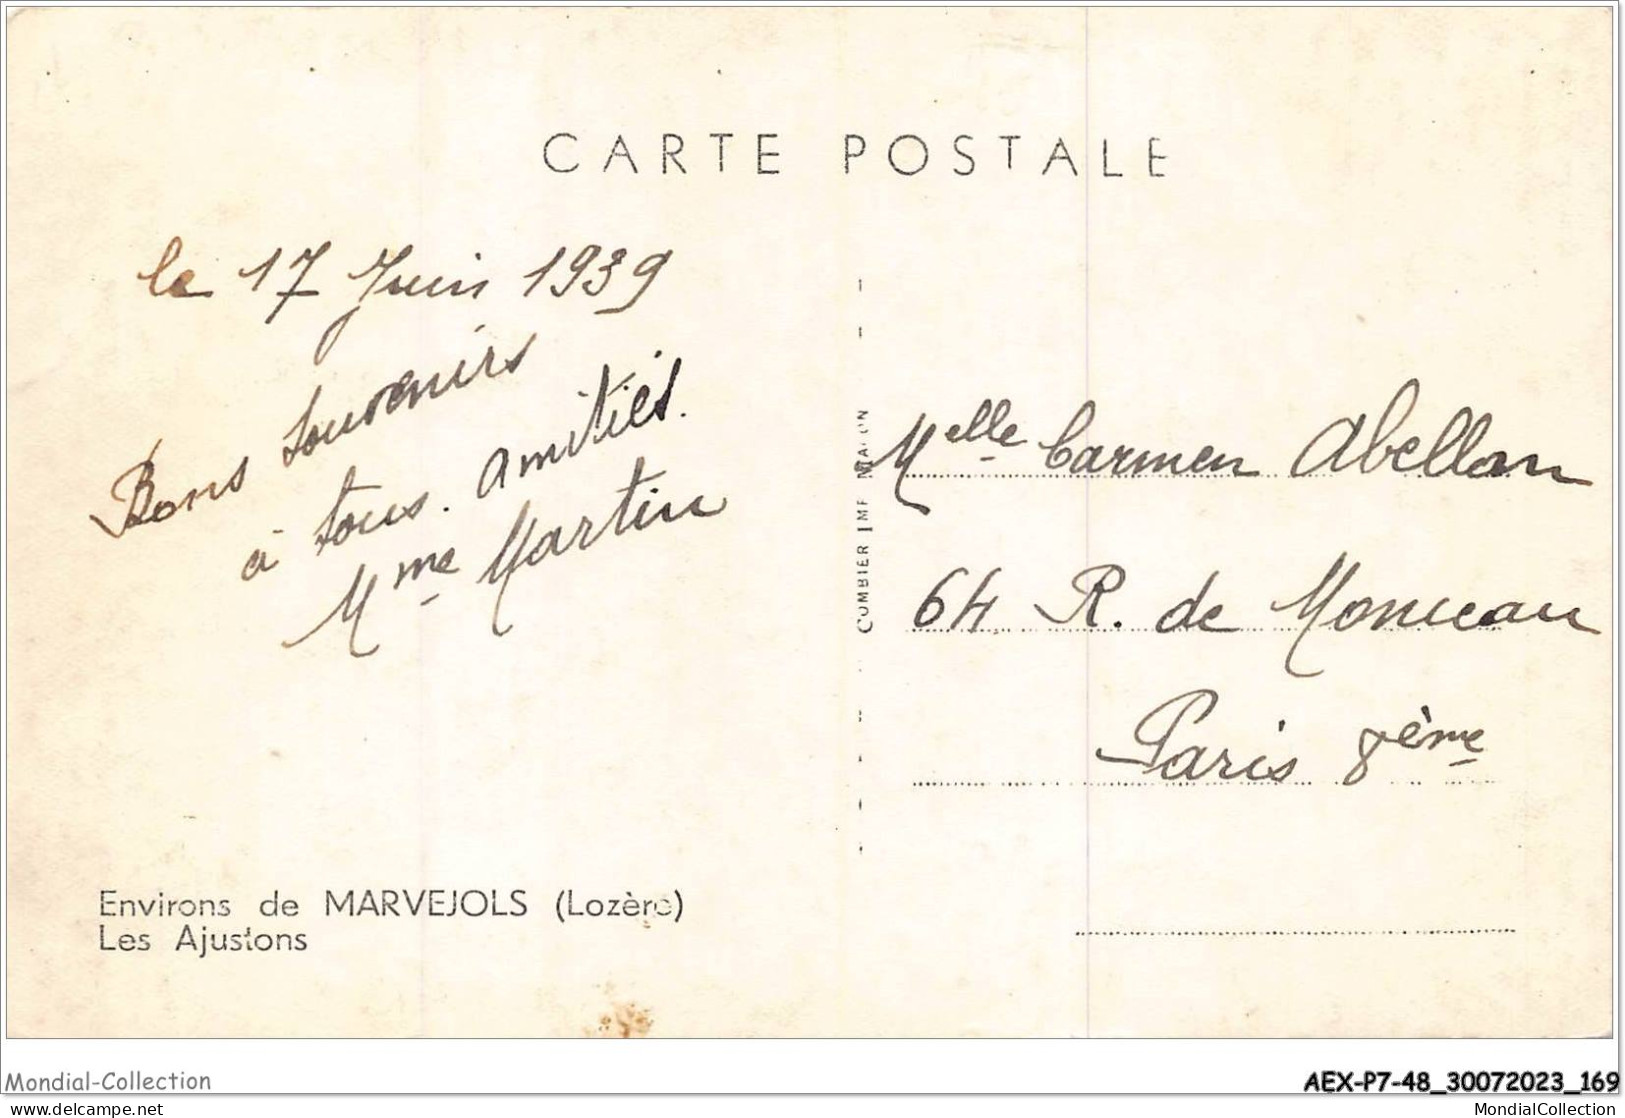 CARTE POSTALE
le 17 Juin 1939
Bons souvenirs
à tous. Amitiés.
Mme Martin
COMBIER IMP MACON
Melle Carmen Abellan
64 R. de Monceau
Paris 8ème
Environs de MARVEJOLS (Lozère)
Les Ajustons
Mondial-Collection
AEX-P7-48_30072023_169
www.delcampe.net
MondialCollection